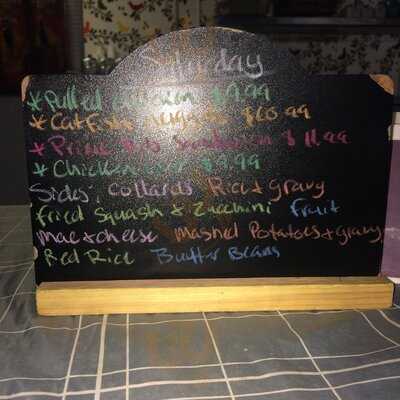 Saturday
* Pulled Chicken $9.99
* Catfish Nuggets $10.99
* Prime Rib Sandwich $11.99
* Chicken $9.99
Sides: Collards Rice & gravy
Fried Squash & Zucchini Fruit
Mac & cheese Mashed Potatoes & gravy
Red Rice Butter Beans